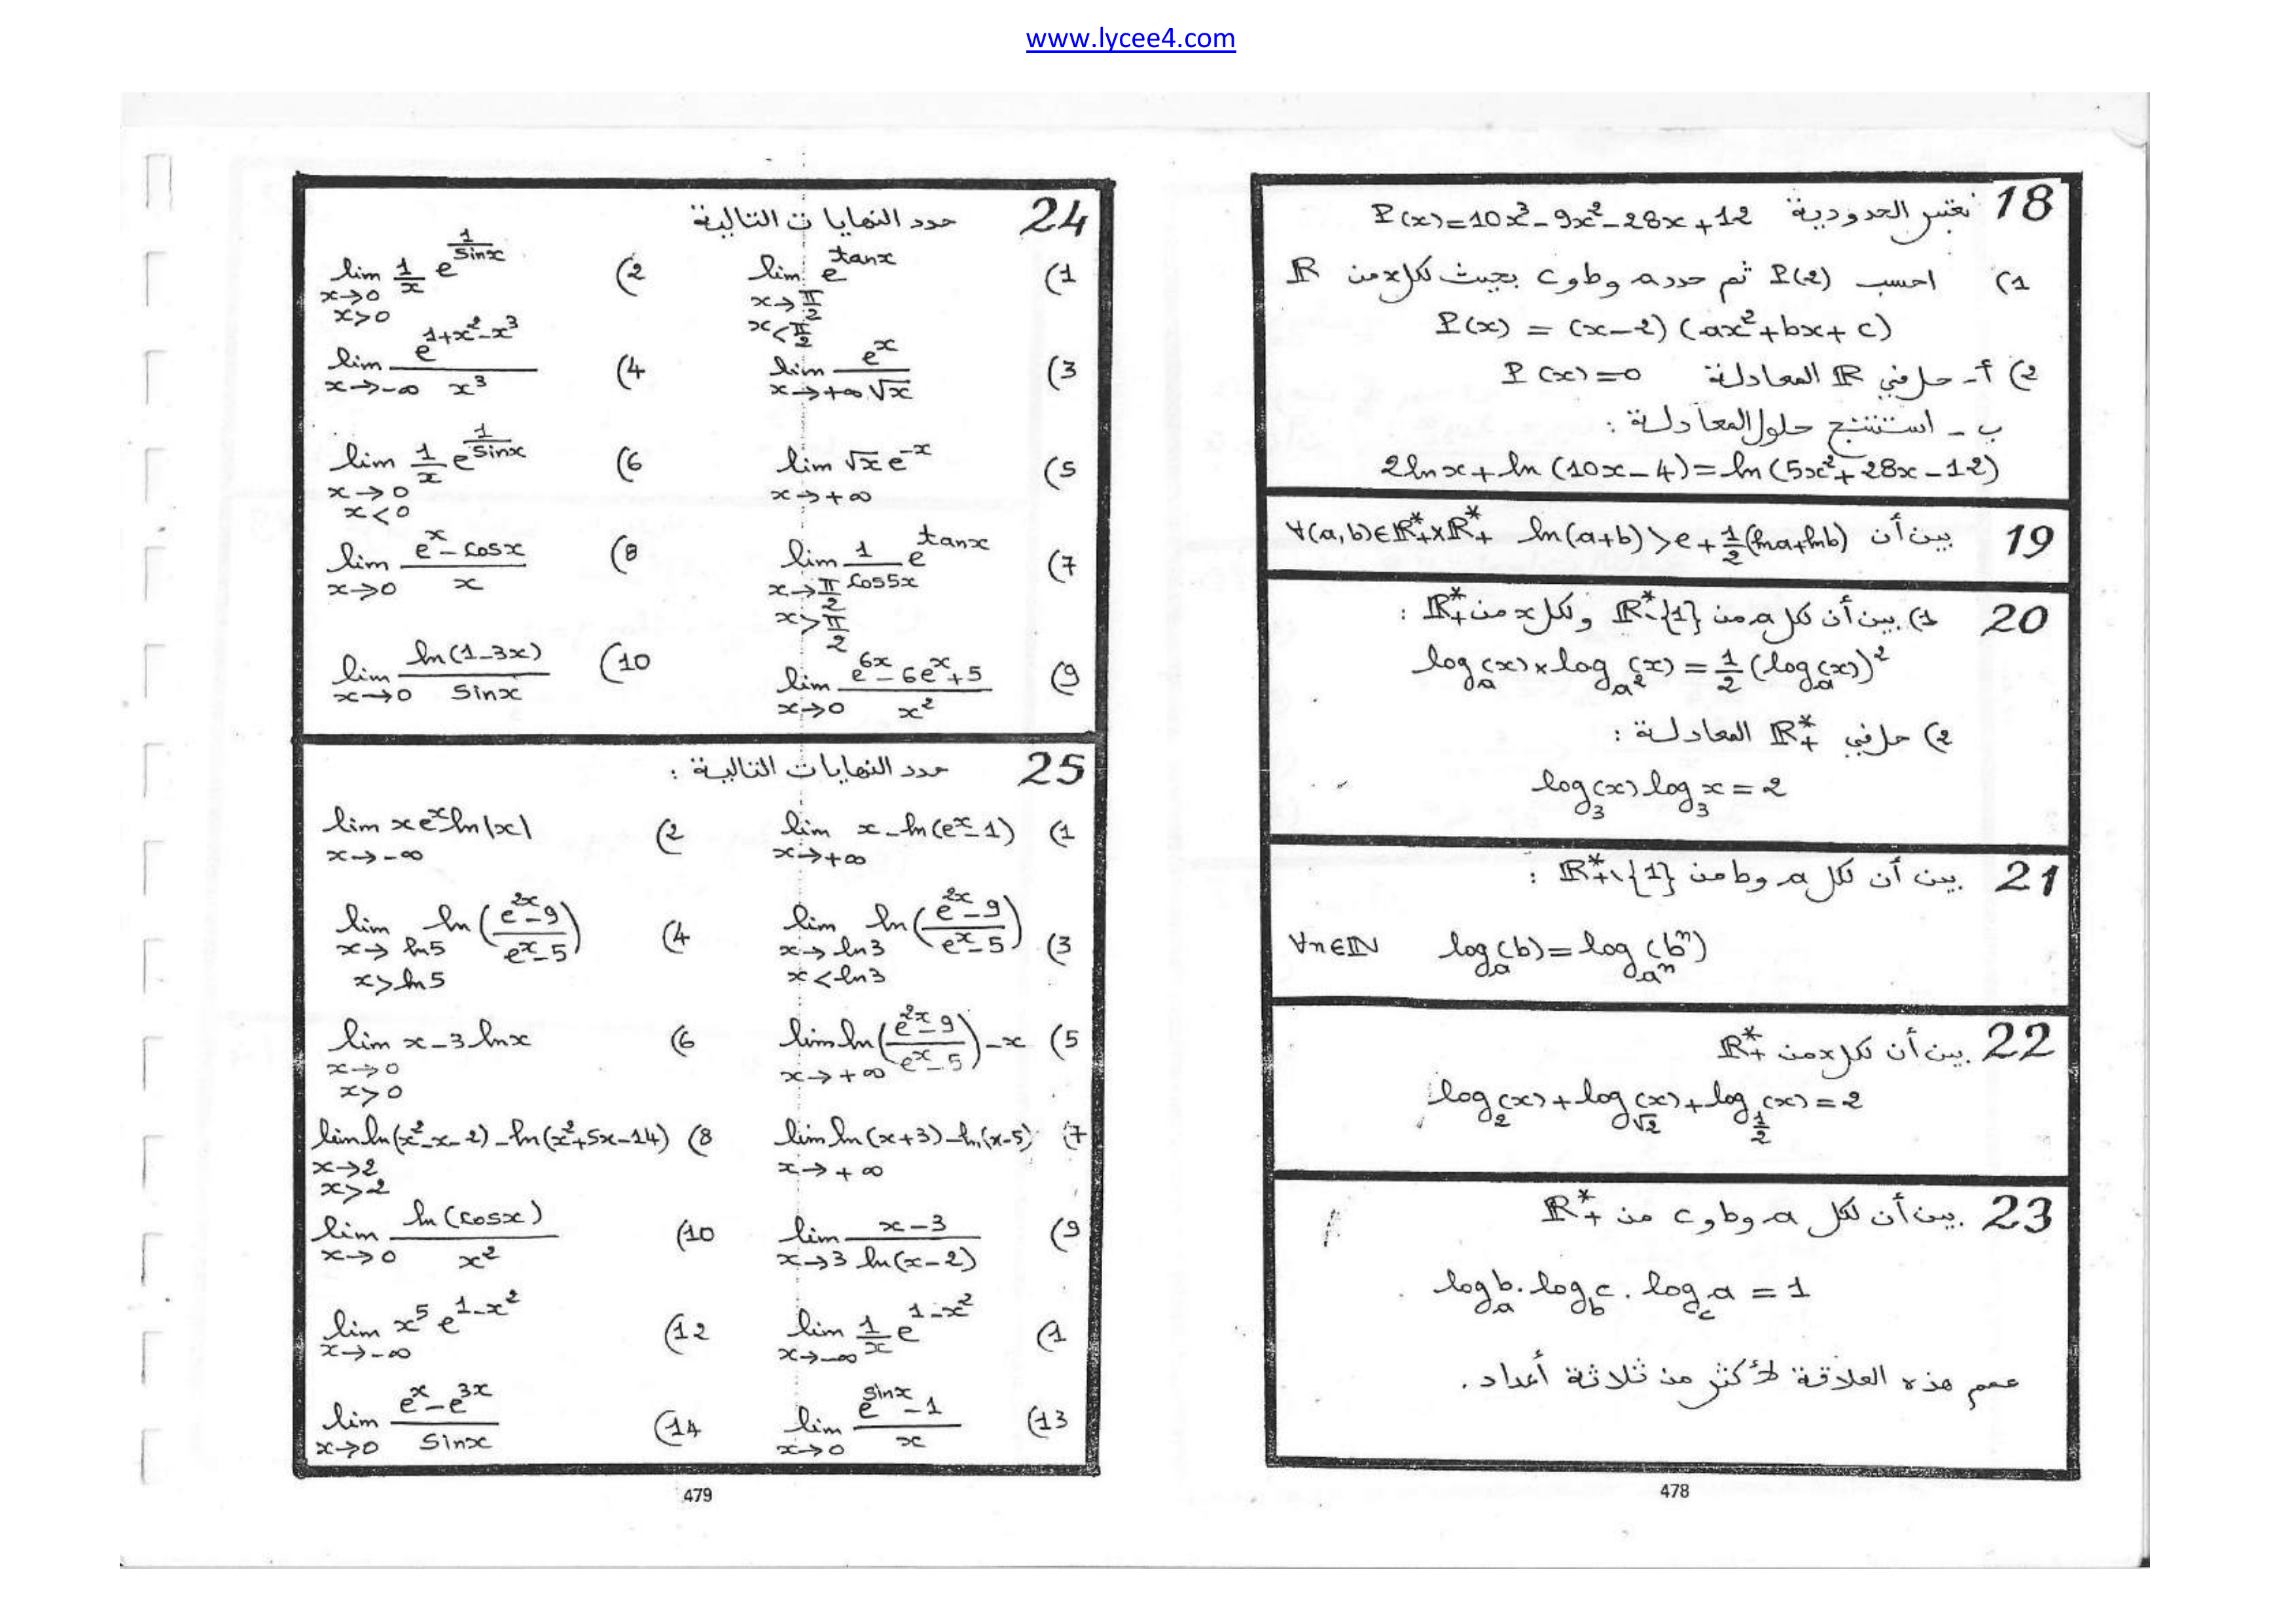 www.lycee4.com
18 نعتبر الحدودية P(x)=10x³-9x²-28x+12
1) احسب P(2) ثم حدد a و b و c بحيث لكل x من ℝ
P(x) = (x-2)(ax²+bx+c)
2) أ- حل في ℝ المعادلة P(x)=0
ب - استنتج حلول المعادلة :
2lnx+ln(10x-4)=ln(5x²+28x-12)
19 بين أن ∀(a,b)∈ℝ*₊×ℝ*₊ ln(a+b)>e+½(lna+lnb)
20 1) بين أن لكل a من ℝ*-{1} ولكل x من ℝ*₊ :
log_a(x)×log_{a²}(x)=½(log_a(x))²
2) حل في ℝ*₊ المعادلة :
log₃(x)log₃x=2
21 بين أن لكل a و b من ℝ*₊\{1} :
∀n∈ℕ log_a(b)=log_{aⁿ}(bⁿ)
22 بين أن لكل x من ℝ*₊
log₂(x)+log_{√2}(x)+log_{½}(x)=2
23 بين أن لكل a و b و c من ℝ*₊
log_a b . log_b c . log_c a = 1
عمم هذه العلاقة لأكثر من ثلاثة أعداد .
478
24 حدد النهايات التالية
1) lim e^{tanx} x→π/2 x<π/2
2) lim 1/x e^{1/sinx} x→0 x>0
3) lim e^x/√x x→+∞
4) lim e^{1+x²-x³}/x³ x→-∞
5) lim √x e^{-x} x→+∞
6) lim 1/x e^{1/sinx} x→0 x<0
7) lim 1/cos5x e^{tanx} x→π/2 x>π/2
8) lim (e^x-cosx)/x x→0
9) lim (e^{6x}-6e^x+5)/x² x→0
10) lim ln(1-3x)/sinx x→0
25 حدد النهايات التالية :
1) lim x-ln(e^x-1) x→+∞
2) lim xe^x ln|x| x→-∞
3) lim ln((e^{2x}-9)/(e^x-5)) x→ln3 x<ln3
4) lim ln((e^{2x}-9)/(e^x-5)) x→ln5 x>ln5
5) lim ln((e^{2x}-9)/(e^x-5))-x x→+∞
6) lim x-3lnx x→0 x>0
7) lim ln(x+3)-ln(x-5) x→+∞
8) lim ln(x²-x-2)-ln(x²+5x-14) x→2 x>2
9) lim (x-3)/ln(x-2) x→3
10) lim ln(cosx)/x² x→0
1) lim 1/x e^{1-x²} x→-∞
12) lim x⁵e^{1-x²} x→-∞
13) lim (e^{sinx}-1)/x x→0
14) lim (e^x-e^{3x})/sinx x→0
479